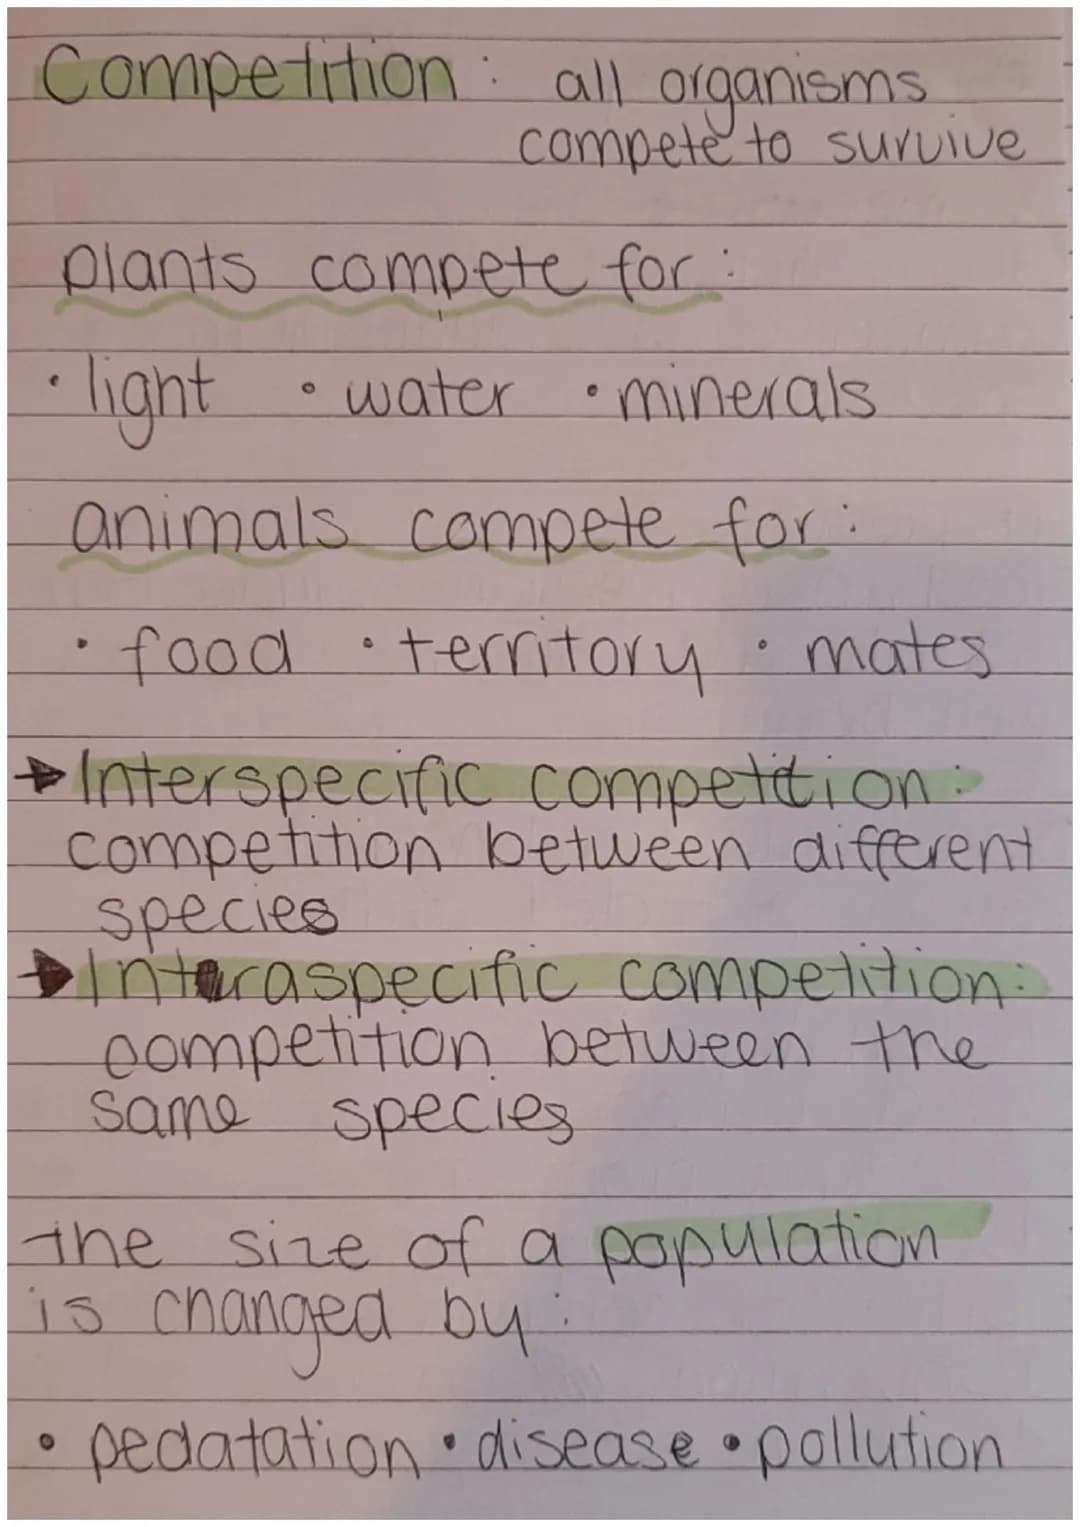 Competition : all organisms
compete to survive
plants compete for :
· light · water · minerals
animals compete for :
· food · territory · mates
→ Interspecific competition :
competition between different
species
→ Intraspecific competition :
competition between the
same species
the size of a population
is changed by :
· pedatation · disease · pollution